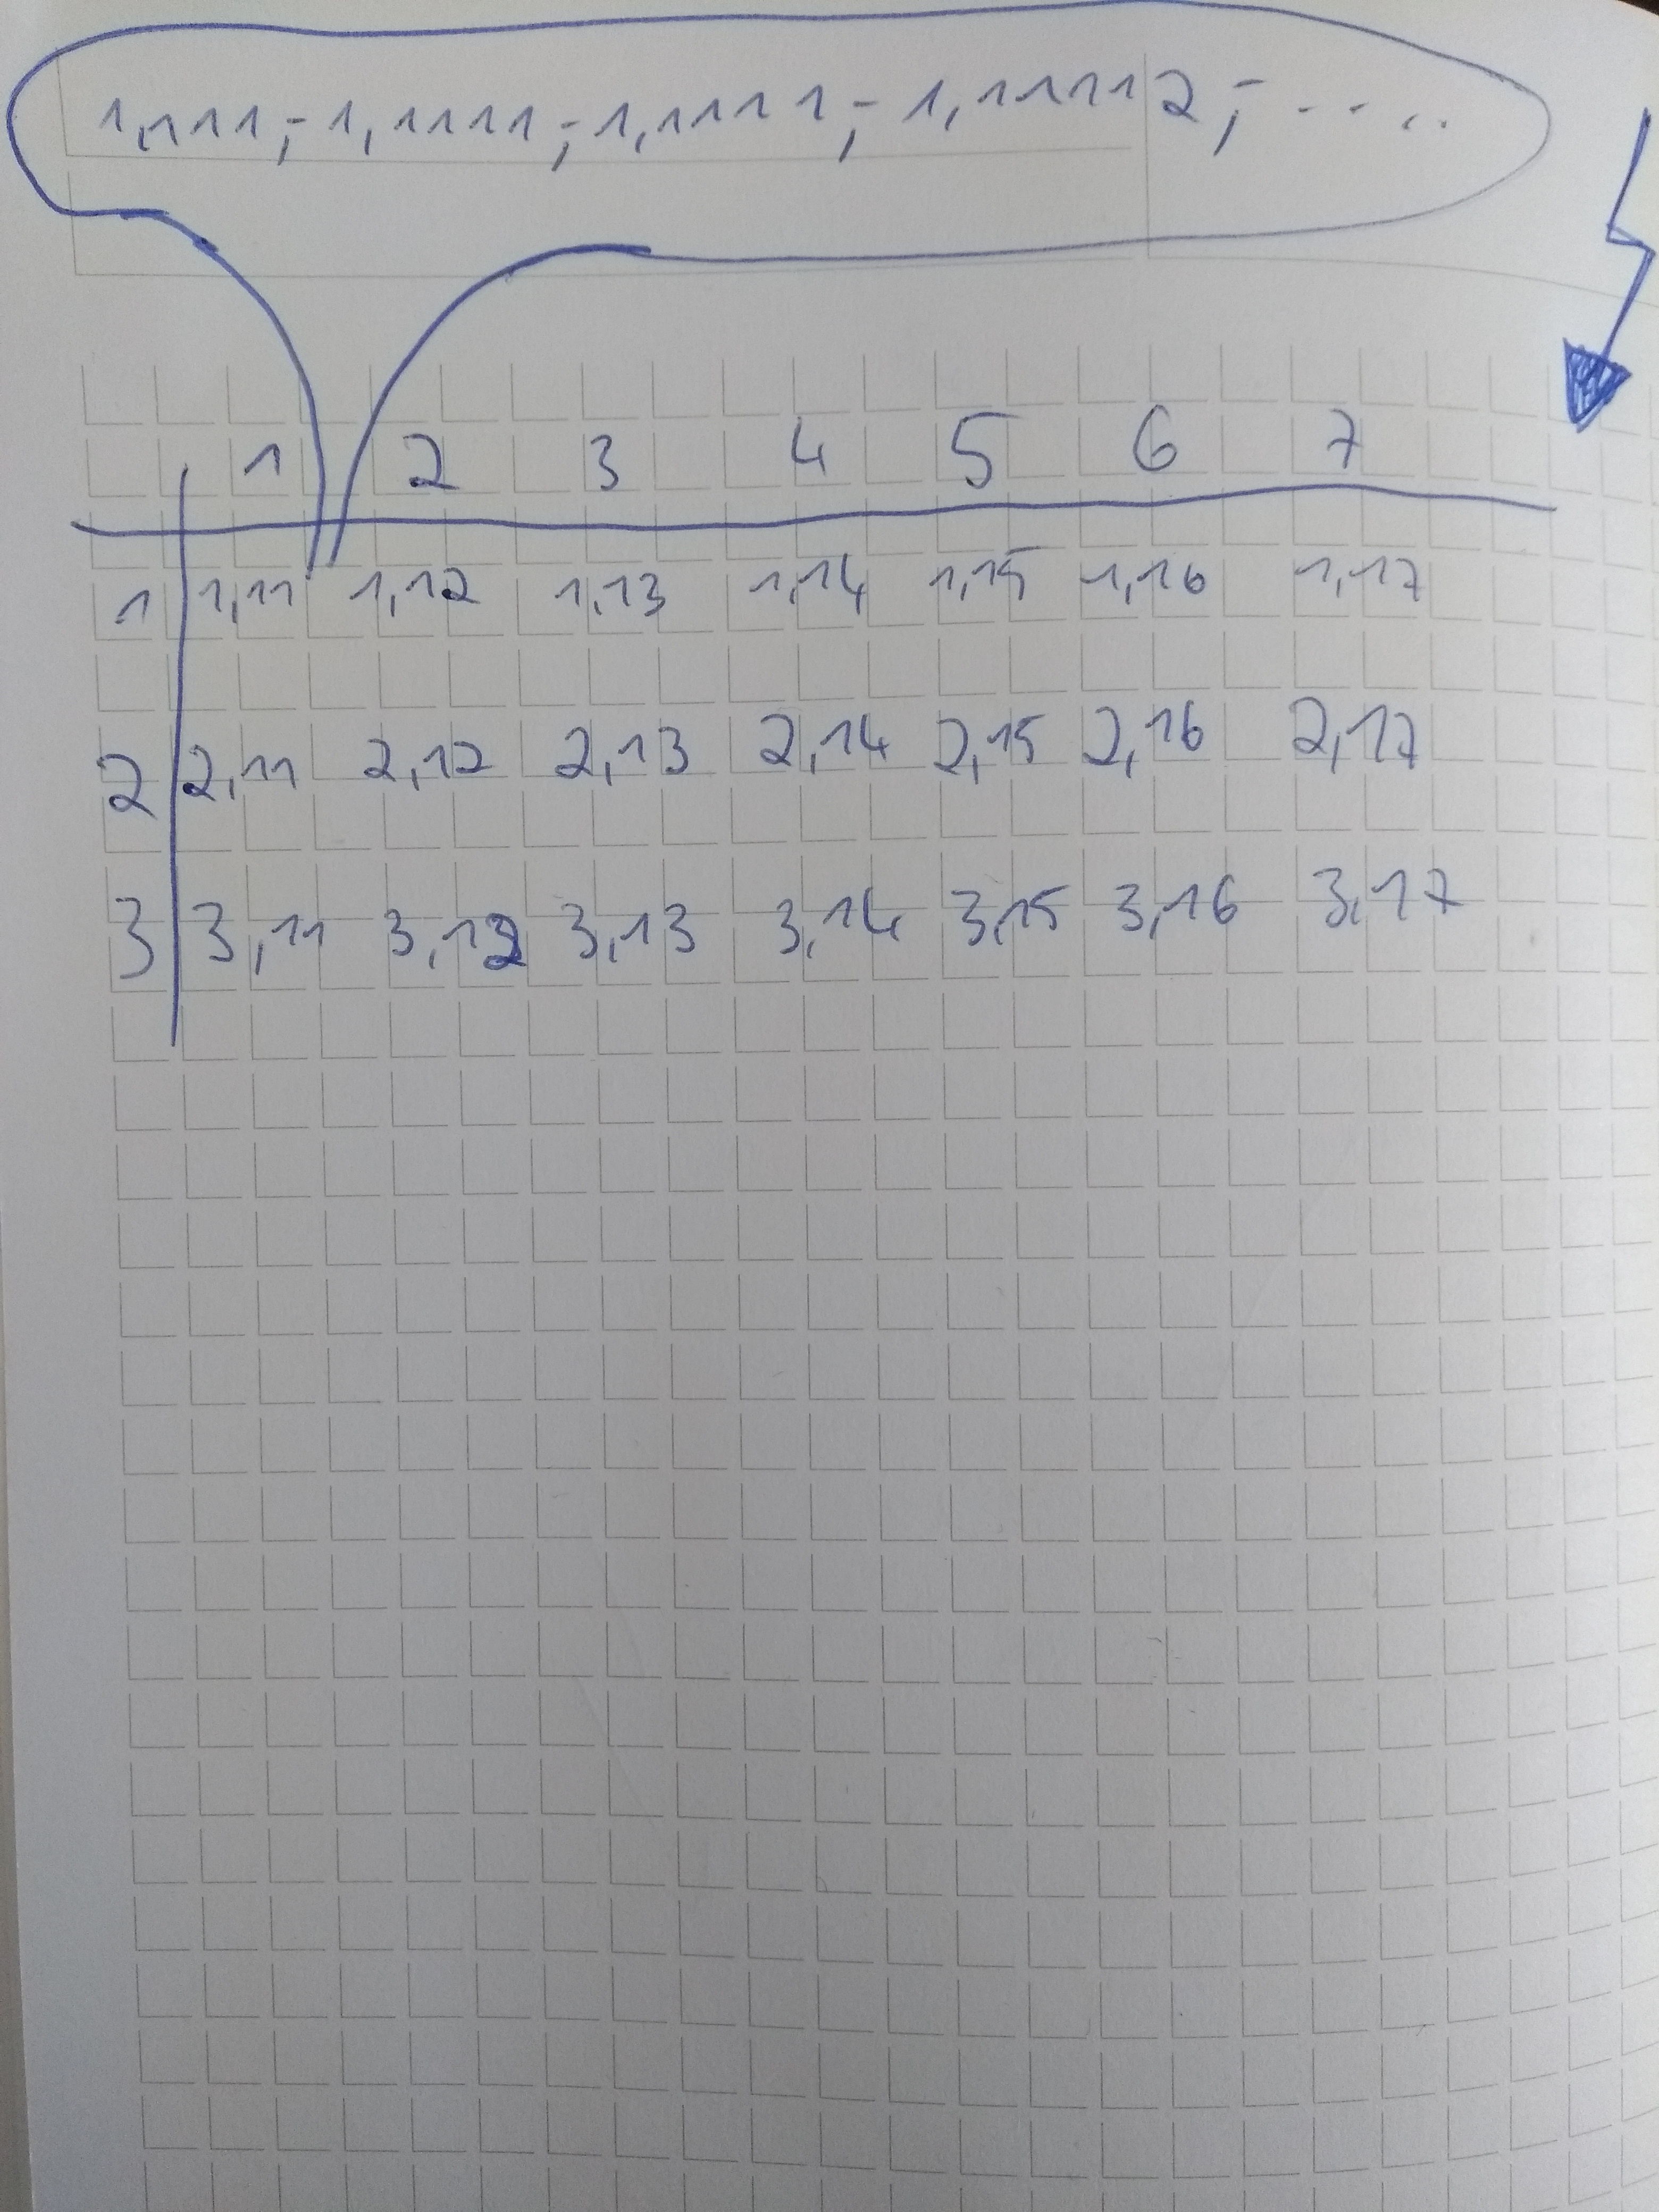 1,111 ; 1,1111 ; 1,11111 ; 1,111112 ; .....
1 2 3 4 5 6 7
1 1,11 1,12 1,13 1,14 1,15 1,16 1,17
2 2,11 2,12 2,13 2,14 2,15 2,16 2,17
3 3,11 3,12 3,13 3,14 3,15 3,16 3,17